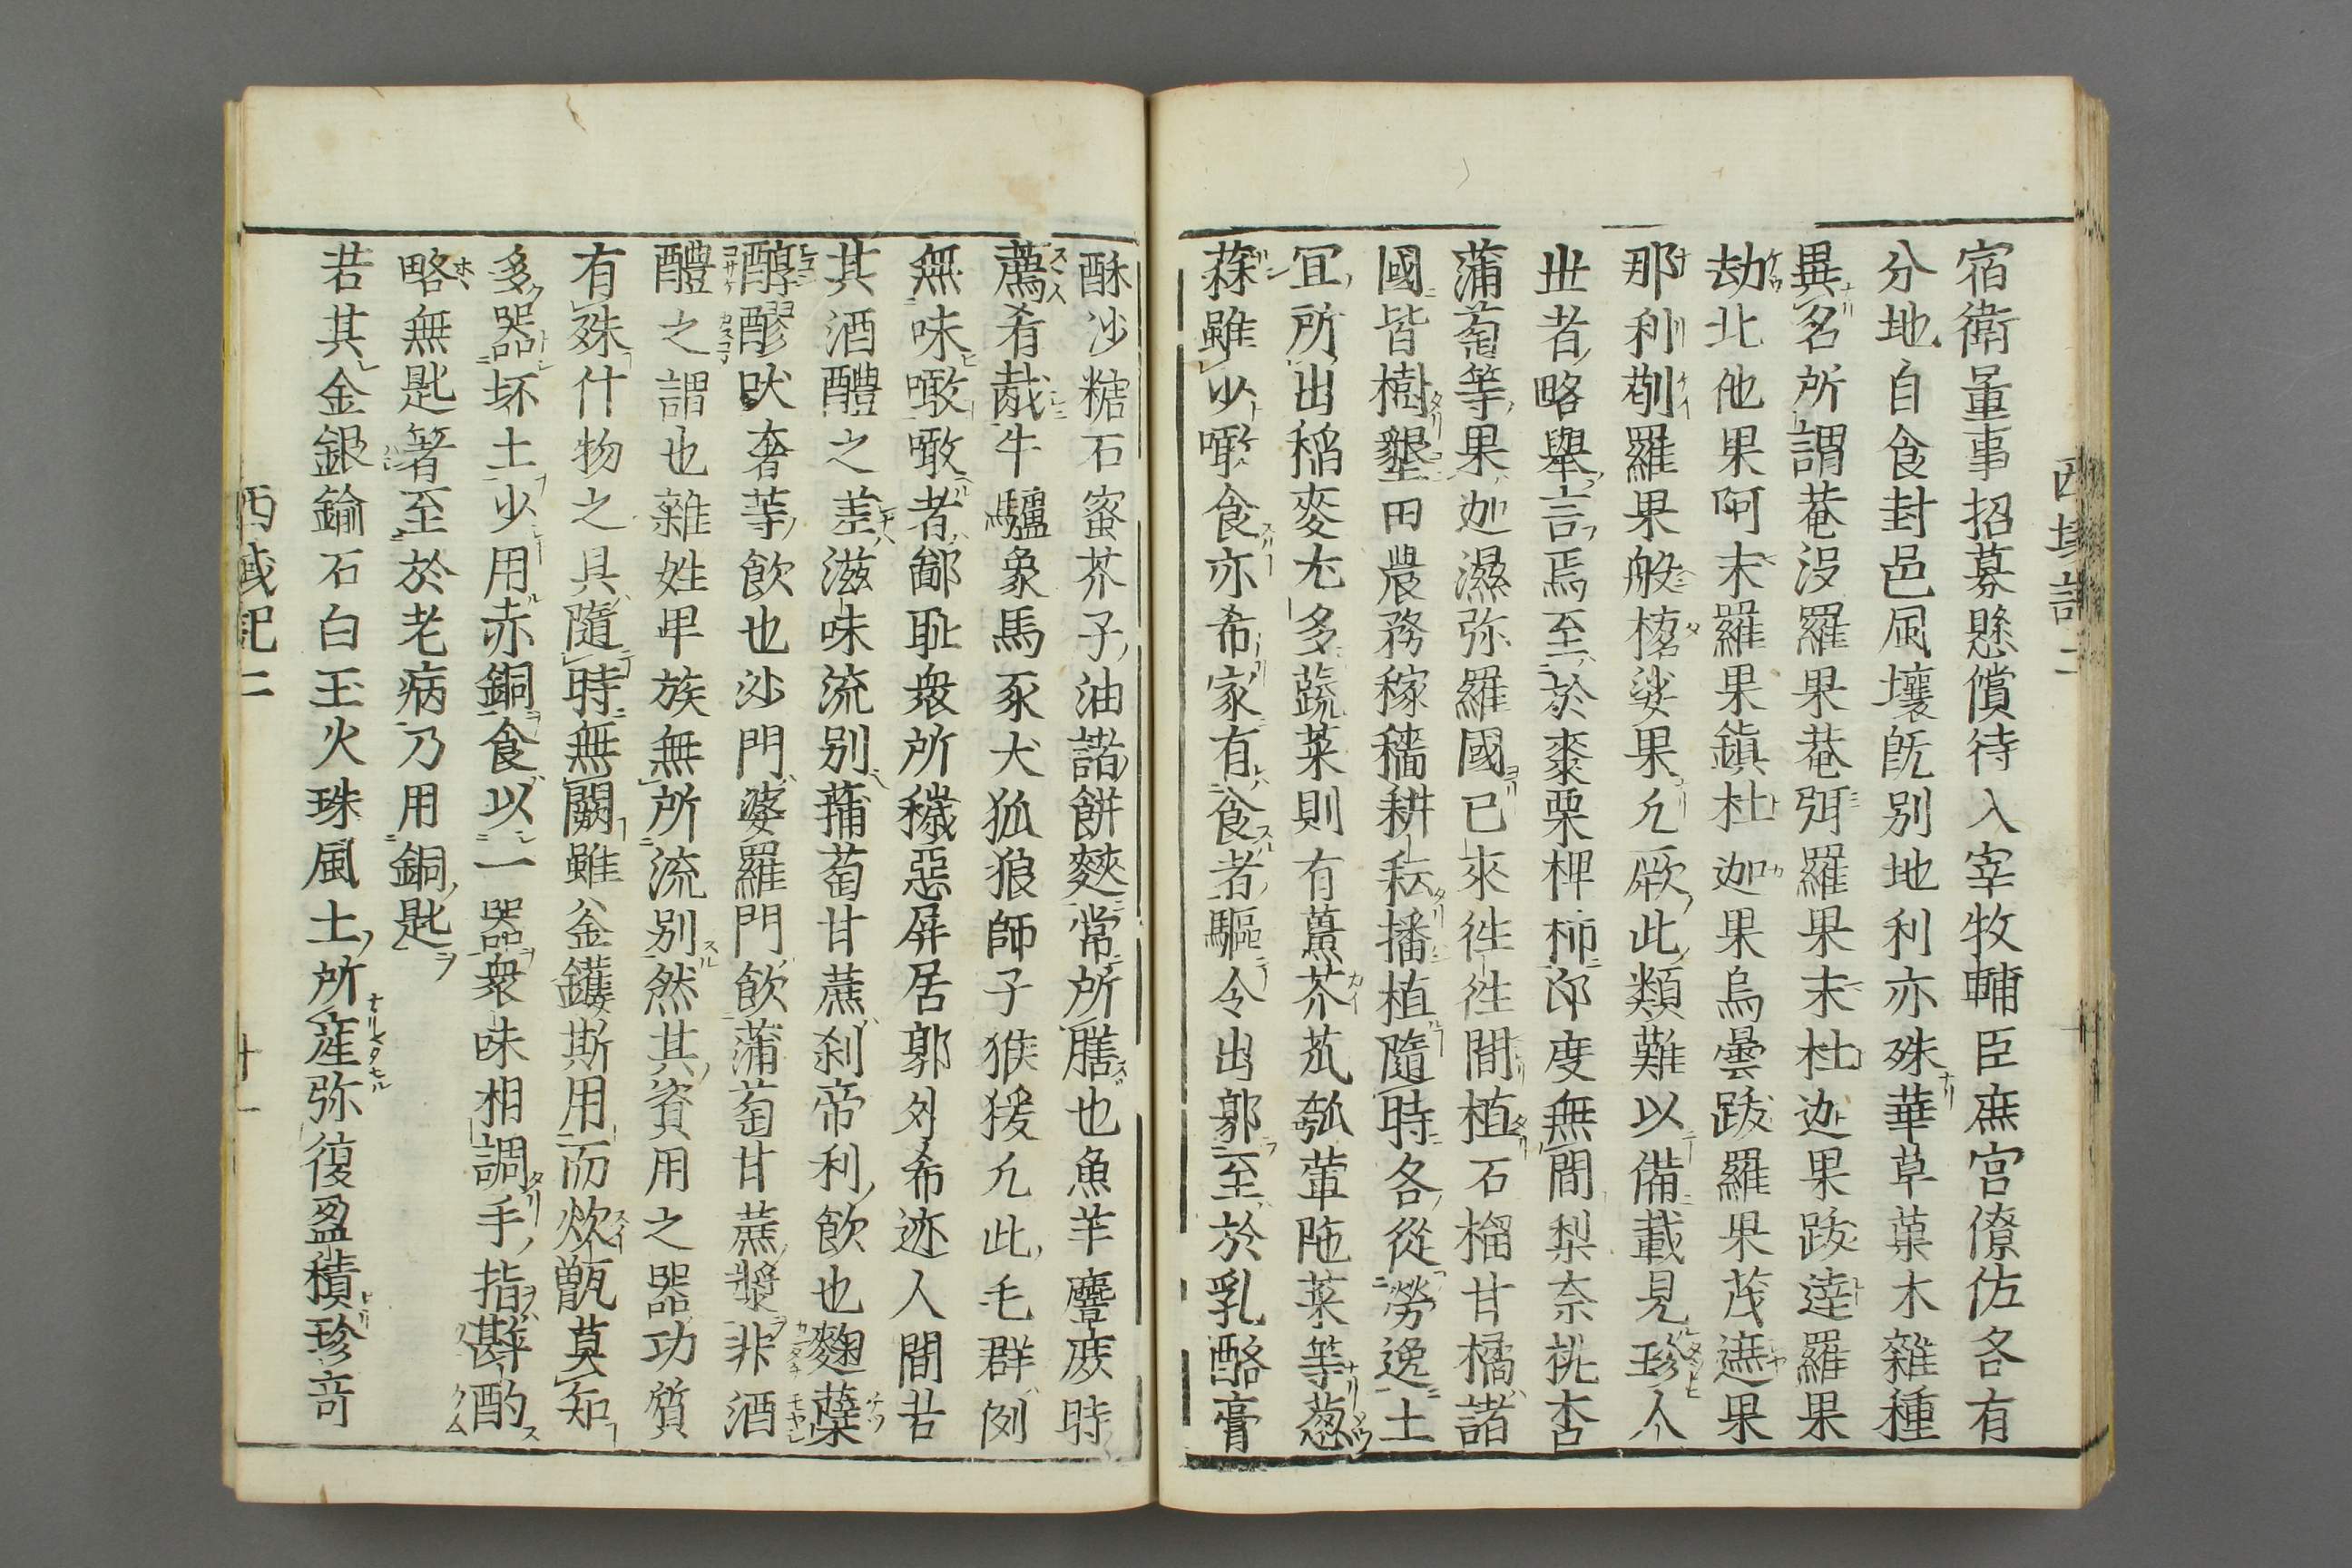 西域記二
宿衛董事招募懸償待入宰牧輔臣庶宮僚佐各有
分地自食封邑風壤既別地利亦殊華草菓木雜種
異名所謂菴沒羅果菴弭羅果末杜迦果跋達羅果
劫北他果阿末羅果鎮杜迦果烏曇跋羅果茂遮果
那利㓨羅果般橠娑果凡厥此類難以備載見珍人
世者略舉言焉至於棗栗椑柿印度無聞梨柰桃杏
蒲萄等果迦濕弥羅國已來往往間植石榴甘橘諸
國皆樹墾田農務稼穡耕耘播植隨時各從勞逸土
宜所出稲麥尤多蔬菜則有薑芥苽瓠葷陁菜等葱
蒜雖少噉食亦希家有食者驅令出郭至於乳酪膏
酥沙糖石蜜芥子油諸餅麨常所膳也魚羊麞㢈時
薦肴胾牛驢象馬豕犬狐狼師子猴猨凡此毛群例
無味噉噉者鄙耻衆所穢惡屏居郭外希迹人間若
其酒醴之差滋味流別蒱萄甘蔗刹帝利飲也麴蘗
醇醪吠奢等飲也沙門婆羅門飲蒲萄甘蔗漿非酒
醴之謂也雜姓卑族無所流別然其資用之器功質
有殊什物之具隨時無闕雖釜鑊斯用而炊甑莫知
多器坏土少用赤銅食以一器衆味相調手指斟酌
略無匙箸至於老病乃用銅匙
若其金銀鍮石白玉火珠風土所産弥復盈積珍奇
西域記二
十一